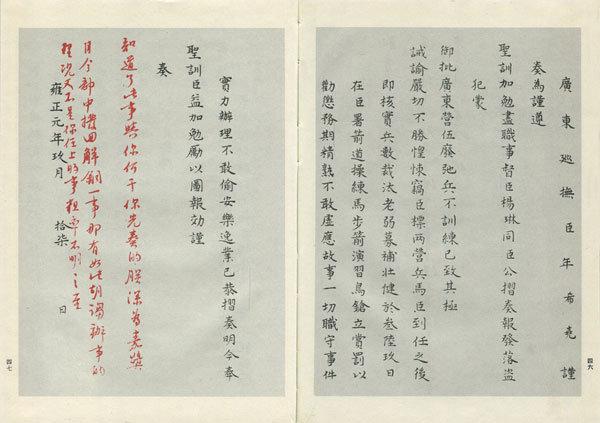 廣東巡撫臣年希堯謹
奏為謹遵
聖訓加勉盡職事督臣楊琳同臣公摺奏報發落盜
犯蒙
御批廣東營伍廢弛兵不訓練已致其極
誡諭嚴切不勝惶悚竊臣標兩營兵馬臣到任之後
即核實兵數裁汰老弱募補壯健於叁陸玖日
在臣署箭道操練馬步箭演習鳥鎗立賞罰以
勸懲務期精熟不敢虛應故事一切職守事件
四六
實力辦理不敢偷安樂逸業已恭摺奏明今奉
聖訓臣益加勉勵以圖報効謹
奏
知道了此事與你何干你先奏的朕深為嘉獎
目今部中撥回解餉一事那有如此胡謅辦事的
理況又不是你任上的事不明之至
雍正元年玖月拾柒日
四七